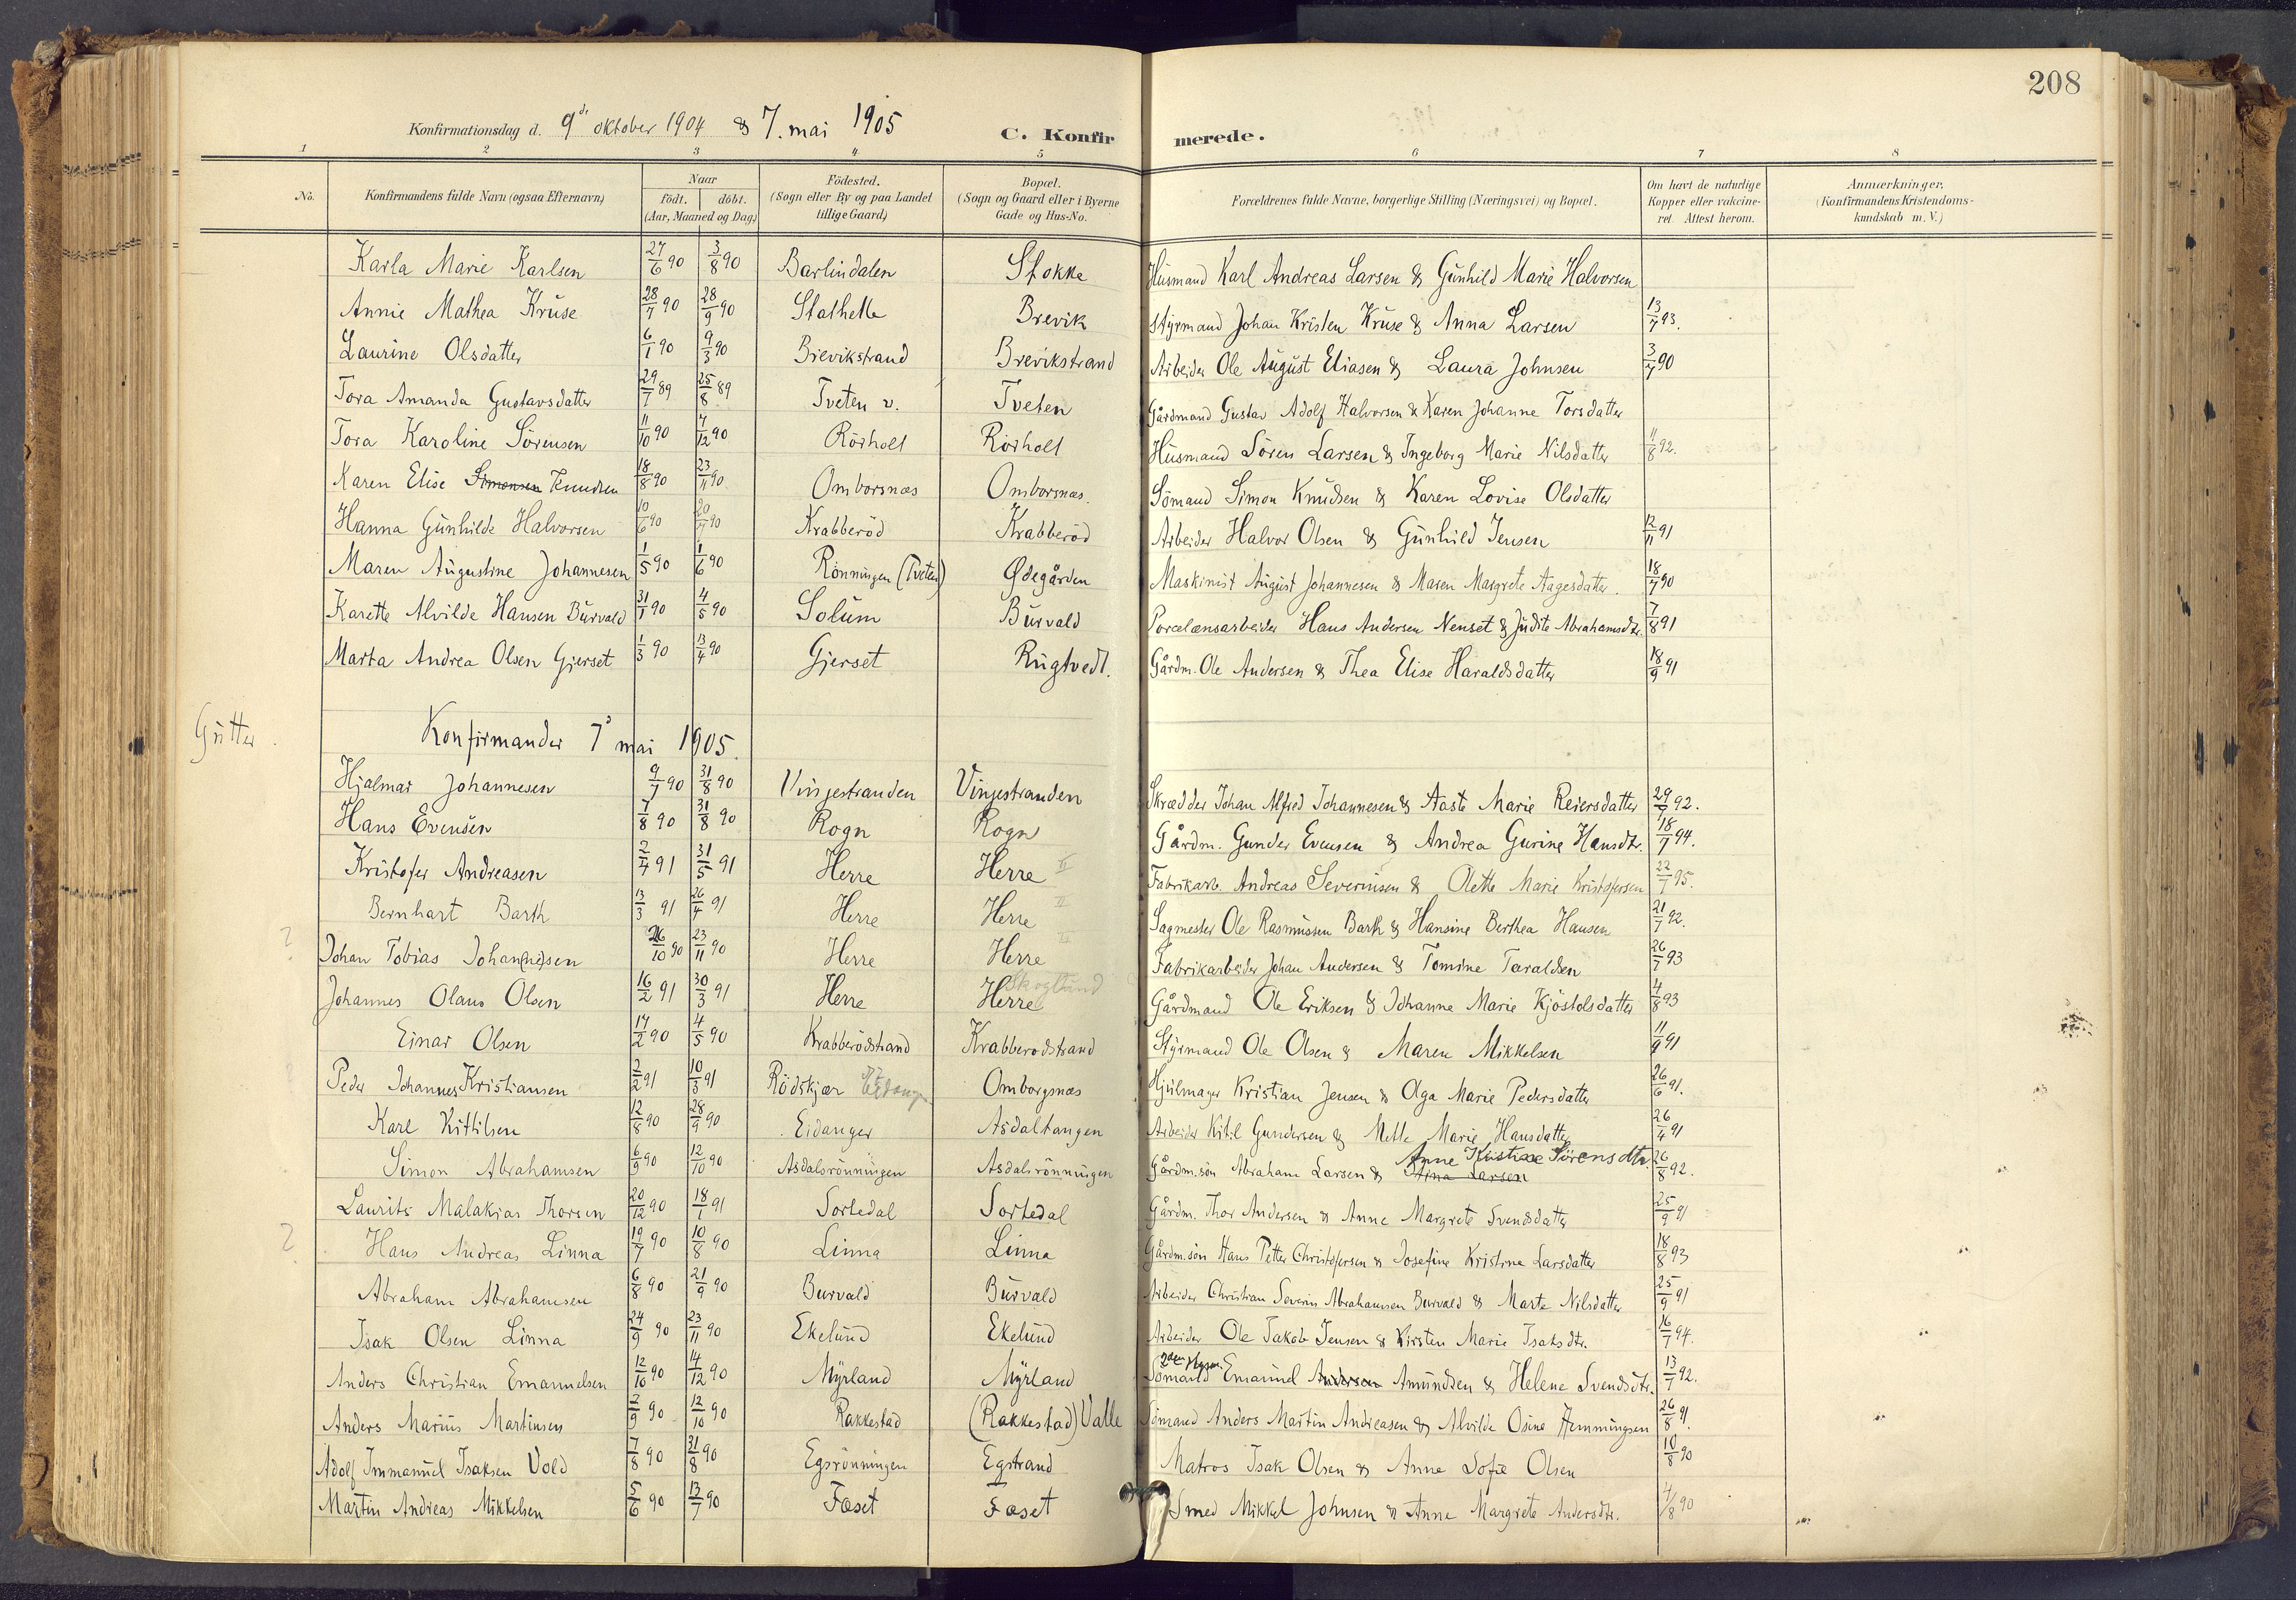 208
Konfirmationsdag d. 9de oktober 1904 & 7. mai 1905 C. Konfirmerede.
1 2 3 4 5 6 7 8
No. Konfirmandens fulde Navn (ogsaa Efternavn) Naar födt. döbt. (Aar, Maaned og Dag) Födested. (Sogn eller By og paa Landet tillige Gaard) Bopæl. (Sogn og Gaard eller i Byerne Gade og Hus-No. Forældrenes fulde Navne, borgerlige Stilling (Næringsvei) og Bopæl. Om havt de naturlige Kopper eller vakcineret. Attest herom. Anmærkninger. (Konfirmandens Kristendomskundskab m. V.)
Karla Marie Karlsen 27/6 90 3/8 90 Barlindalen Stokke Husmand Karl Andreas Larsen & Gunhild Marie Halvorsen
Annie Mathea Kruse 28/7 90 28/9 90 Stathelle Brevik Styrmand Johan Kristen Kruse & Anna Larsen 13/7 93.
Laurine Olsdatter 6/1 90 9/3 90 Brevikstrand Brevikstrand Arbeider Ole August Eliasen & Laura Johnsen 3/7 90
Tora Amanda Gustavsdatter 29/7 89 25/8 89 Tveten v. Tveten Gårdmand Gustav Adolf Halvorsen & Karen Johanne Torsdatter
Tora Karoline Sörensen 11/10 90 7/12 90 Rörholt Rörholt Husmand Sören Larsen & Ingeborg Marie Nilsdatter 11/8 92.
Karen Elise Simonsen Knudsen 18/8 90 23/11 90 Omborsnæs Omborsnæs. Sömand Simon Knudsen & Karen Lovise Olsdatter
Hanna Gunhilde Halvorsen 10/6 90 20/7 90 Krabberöd Krabberöd Arbeider Halvor Olsen & Gunhild Jensen 12/11 91
Maren Augustine Johannesen 1/5 90 1/6 90 Rönningen (Tveten) Ødegården Maskinist August Johannesen & Maren Margrete Aagesdatter. 18/7 90
Karette Alvilde Hansen Burvald 31/1 90 4/5 90 Solum Burvald Porcelænsarbeider Hans Andersen Nenset & Judite Abrahamsdtr. 7/8 91
Marta Andrea Olsen Gjerset 1/3 90 13/4 90 Gjerset Rugtvedt. Gårdm. Ole Andersen & Thea Elise Haraldsdatter 18/9 91
Gutter. Konfirmander 7de mai 1905.
Hjalmar Johannesen 9/7 90 31/8 90 Vinjestranden Vinjestranden Skrædder Johan Alfred Johannesen & Aaste Marie Reiersdatter 29/9 92.
Hans Evensen 7/8 90 31/8 90 Rogn Rogn Gårdm. Gunder Evensen & Andrea Gurine Hansdtr. 18/7 94.
Kristofer Andreasen 2/4 91 31/5 91 Herre Herre II Fabrikarb. Andreas Severinsen & Olette Marie Kristofersen 22/7 95.
Bernhart Barth 13/3 91 26/4 91 Herre Herre II Sagmester Ole Rasmussen Barth & Hansine Berthea Hansen 21/7 92.
? Johan Tobias Johan(ne)sen 26/10 90 23/11 90 Herre Herre II Fabrikarbeider Johan Andersen & Tomine Taraldsen 26/7 93
Johannes Olaus Olsen 16/2 91 30/3 91 Herre Herre Skoglund Gårdmand Ole Eriksen & Johanne Marie Kjöstolsdatter 4/8 93
Einar Olsen 17/2 90 4/5 90 Krabberödstrand Krabberodstrand Styrmand Ole Olsen & Maren Mikkelsen 11/9 91
Peder Johannes Kristiansen 2/2 91 10/3 91 Rödskjær Eidanger Omborgsnæs Hjulmager Kristian Jensen & Olga Marie Pedersdatter 26/6 91.
Karl Kittilsen 12/8 90 28/9 90 Eidanger Asdaltangen Arbeider Kitil Gundersen & Mette Marie Hansdatter 26/4 91
Simon Abrahamsen 6/9 90 12/10 90 Asdalsrönningen Asdalsrönningen Gårdm.sön Abraham Larsen & Stina Larsen Anne Kristine Sörensdtr. 26/8 92.
Laurits Malakias Thorsen 20/12 90 18/1 91 Sortedal Sortedal Gårdm. Thor Andersen & Anne Margrete Svendsdatter 25/9 91
? Hans Andreas Linna 19/7 90 10/8 90 Linna Linna Gårdm.sön Hans Petter Christofersen & Josefine Kristine Larsdatter 18/8 93
Abraham Abrahamsen 6/8 90 21/9 90 Burvald Burvald Arbeider Christian Severin Abrahamsen Burvald & Marte Nilsdatter 25/9 91
Isak Olsen Linna 24/9 90 23/11 90 Ekelund Ekelund Arbeider Ole Jakob Jensen & Kirsten Marie Isaksdtr. 16/7 94.
Anders Christian Emanuelsen 12/10 90 14/12 90 Myrland Myrland Sömand Emanuel Andersen Amundsen & Helene Svendsdtr. 13/7 92.
Anders Marius Martinsen 2/9 90 12/10 90 Rakkestad (Rakkestad) Valle Sömand Anders Martin Andreasen & Alvilde Osine Hemmingsen 26/8 91.
Adolf Immanuel Isaksen Vold 7/8 90 31/8 90 Egsrönningen Egstrand Matros Isak Olsen & Anne Sofie Olsen 10/8 90
Martin Andreas Mikkelsen 5/6 90 13/7 90 Faset Faset Smed Mikkel Johnsen & Anne Margrete Andersdtr. 4/8 90